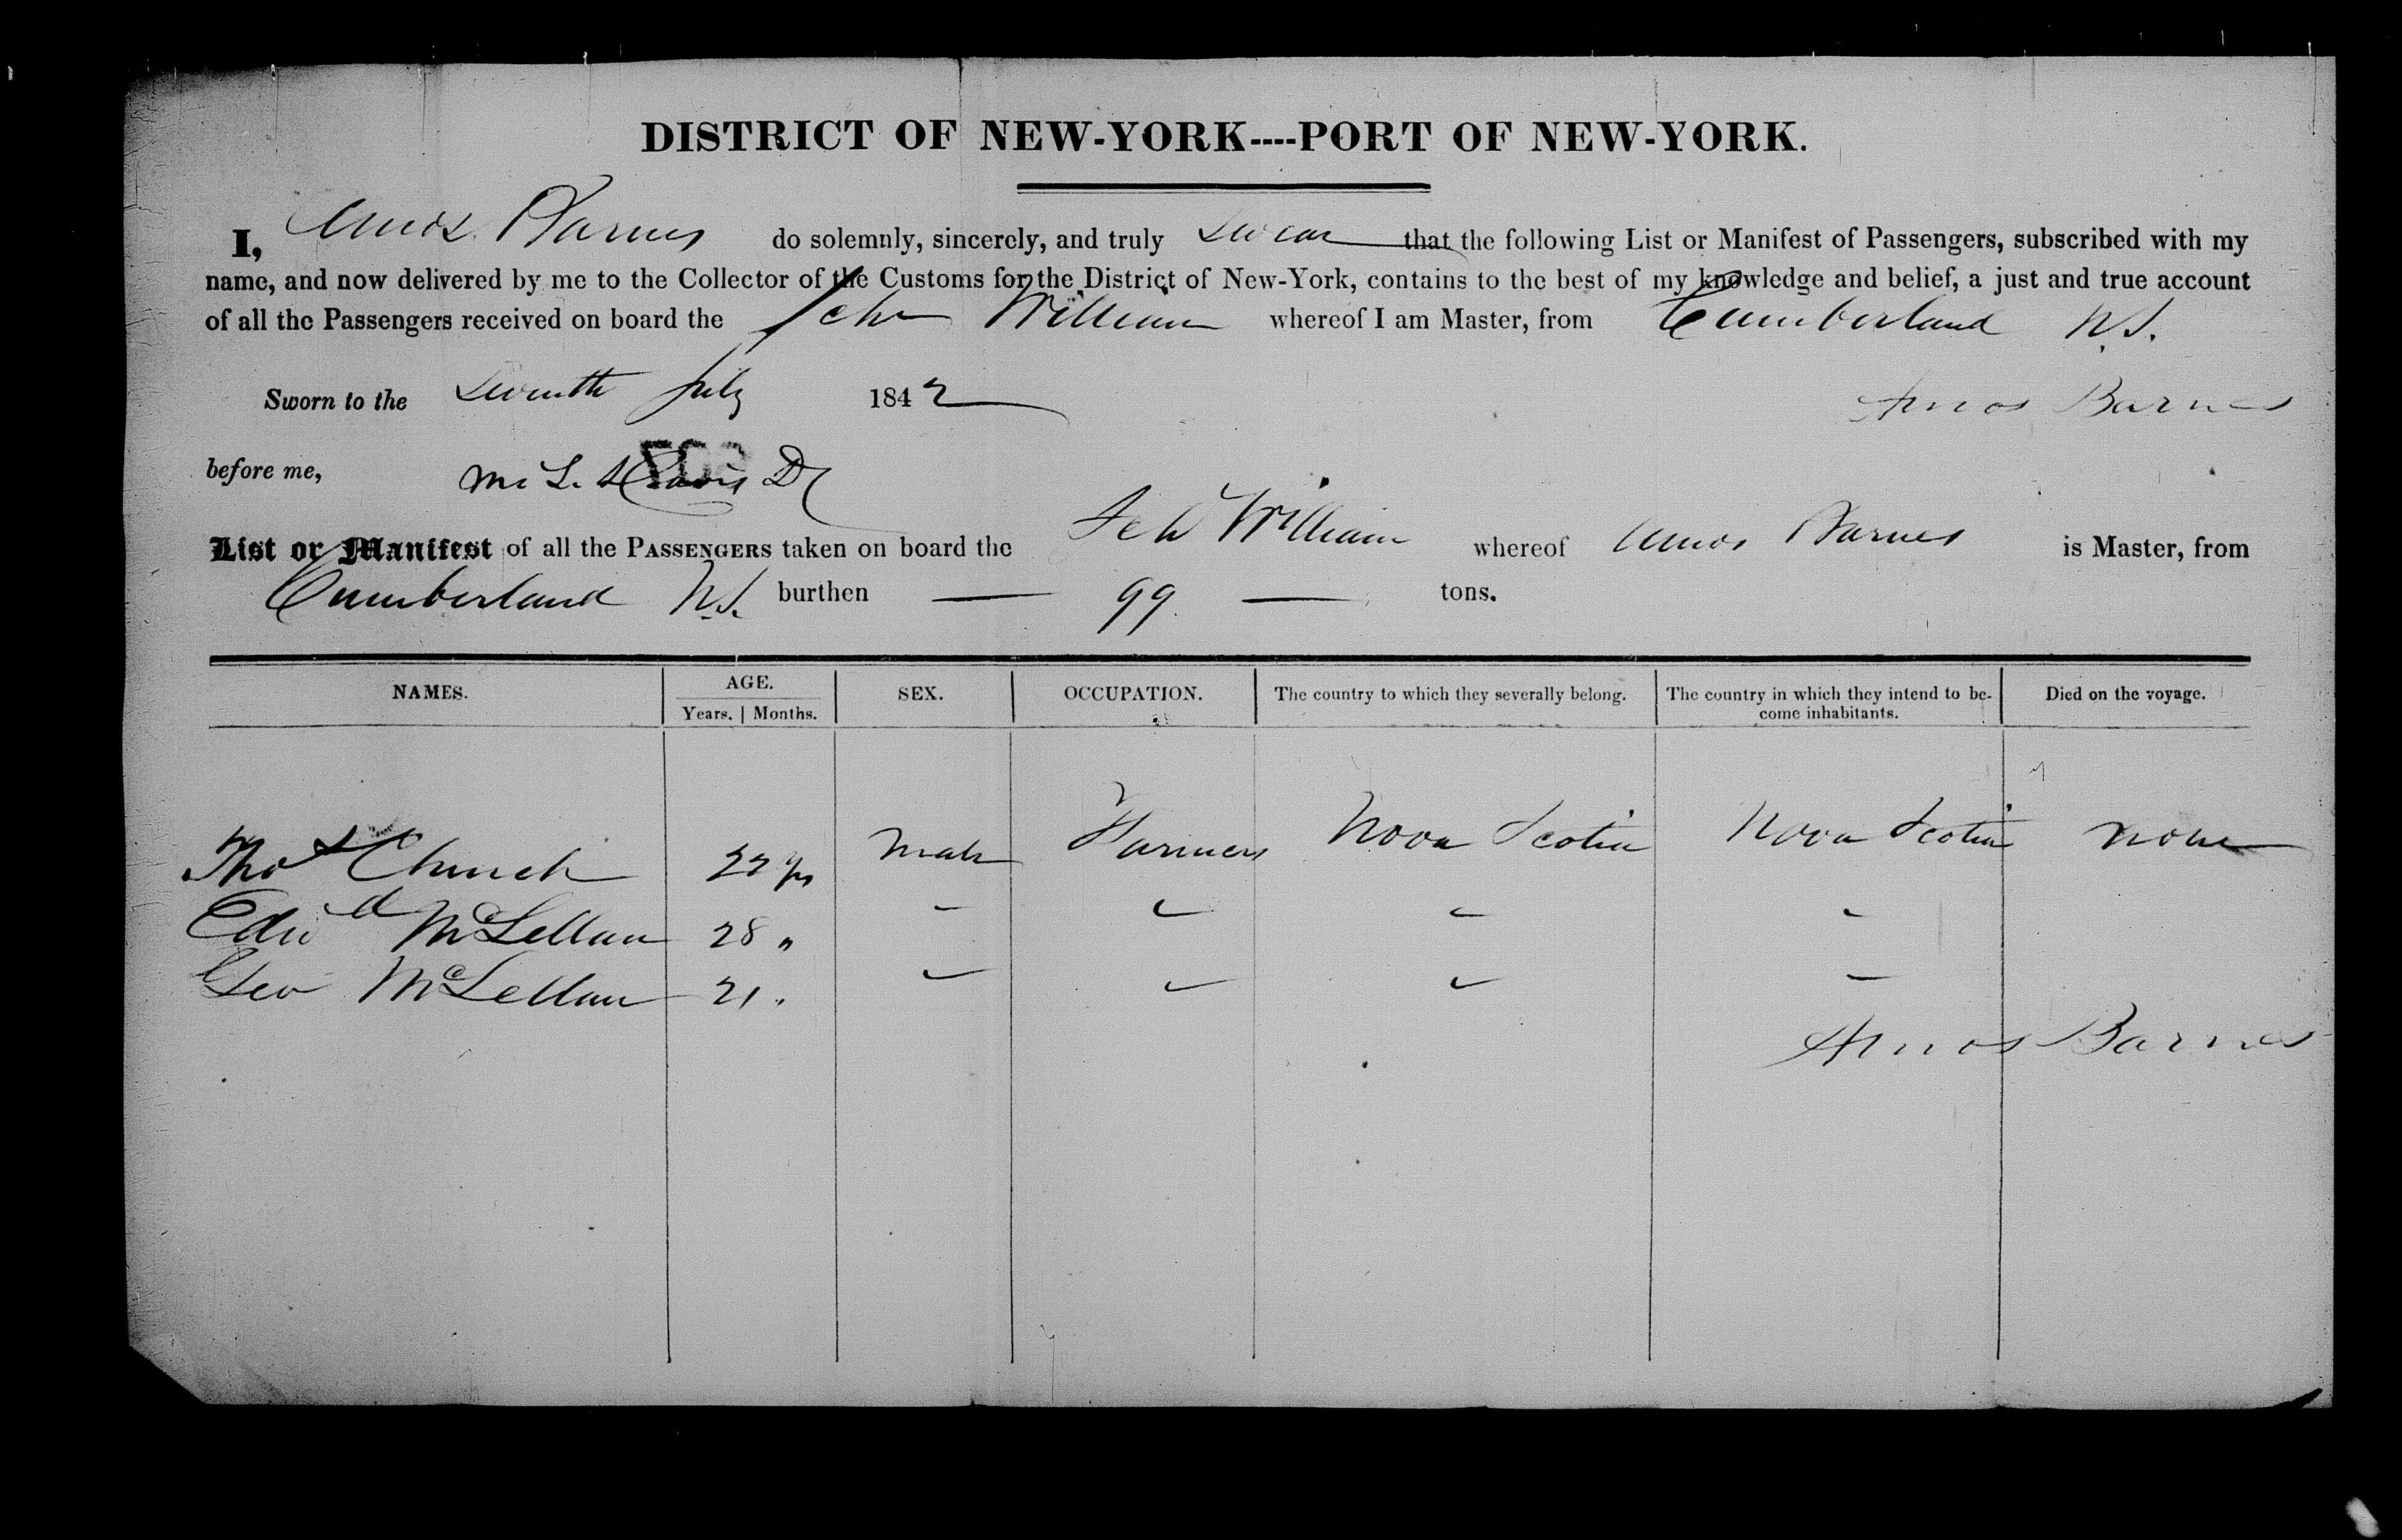 DISTRICT OF NEW-YORK----PORT OF NEW-YORK.
I, Amos Barnes do solemnly, sincerely, and truly swear that the following List or Manifest of Passengers, subscribed with my
name, and now delivered by me to the Collector of the Customs for the District of New-York, contains to the best of my knowledge and belief, a just and true account
of all the Passengers received on board the Schr William whereof I am Master, from Cumberland N.S.
Sworn to the Seventh July 1842
Amos Barnes
before me,
List or Manifest of all the PASSENGERS taken on board the Sch William whereof Amos Barnes is Master, from
Cumberland N.S. burthen 99 tons.
NAMES. AGE. Years. Months. SEX. OCCUPATION. The country to which they severally belong. The country in which they intend to be-come inhabitants. Died on the voyage.
Thos Church 22 yrs Male Farmers Nova Scotia Nova Scotia None
Edwd McLellan 28 "
Geo McLellan 21 "
Amos Barnes